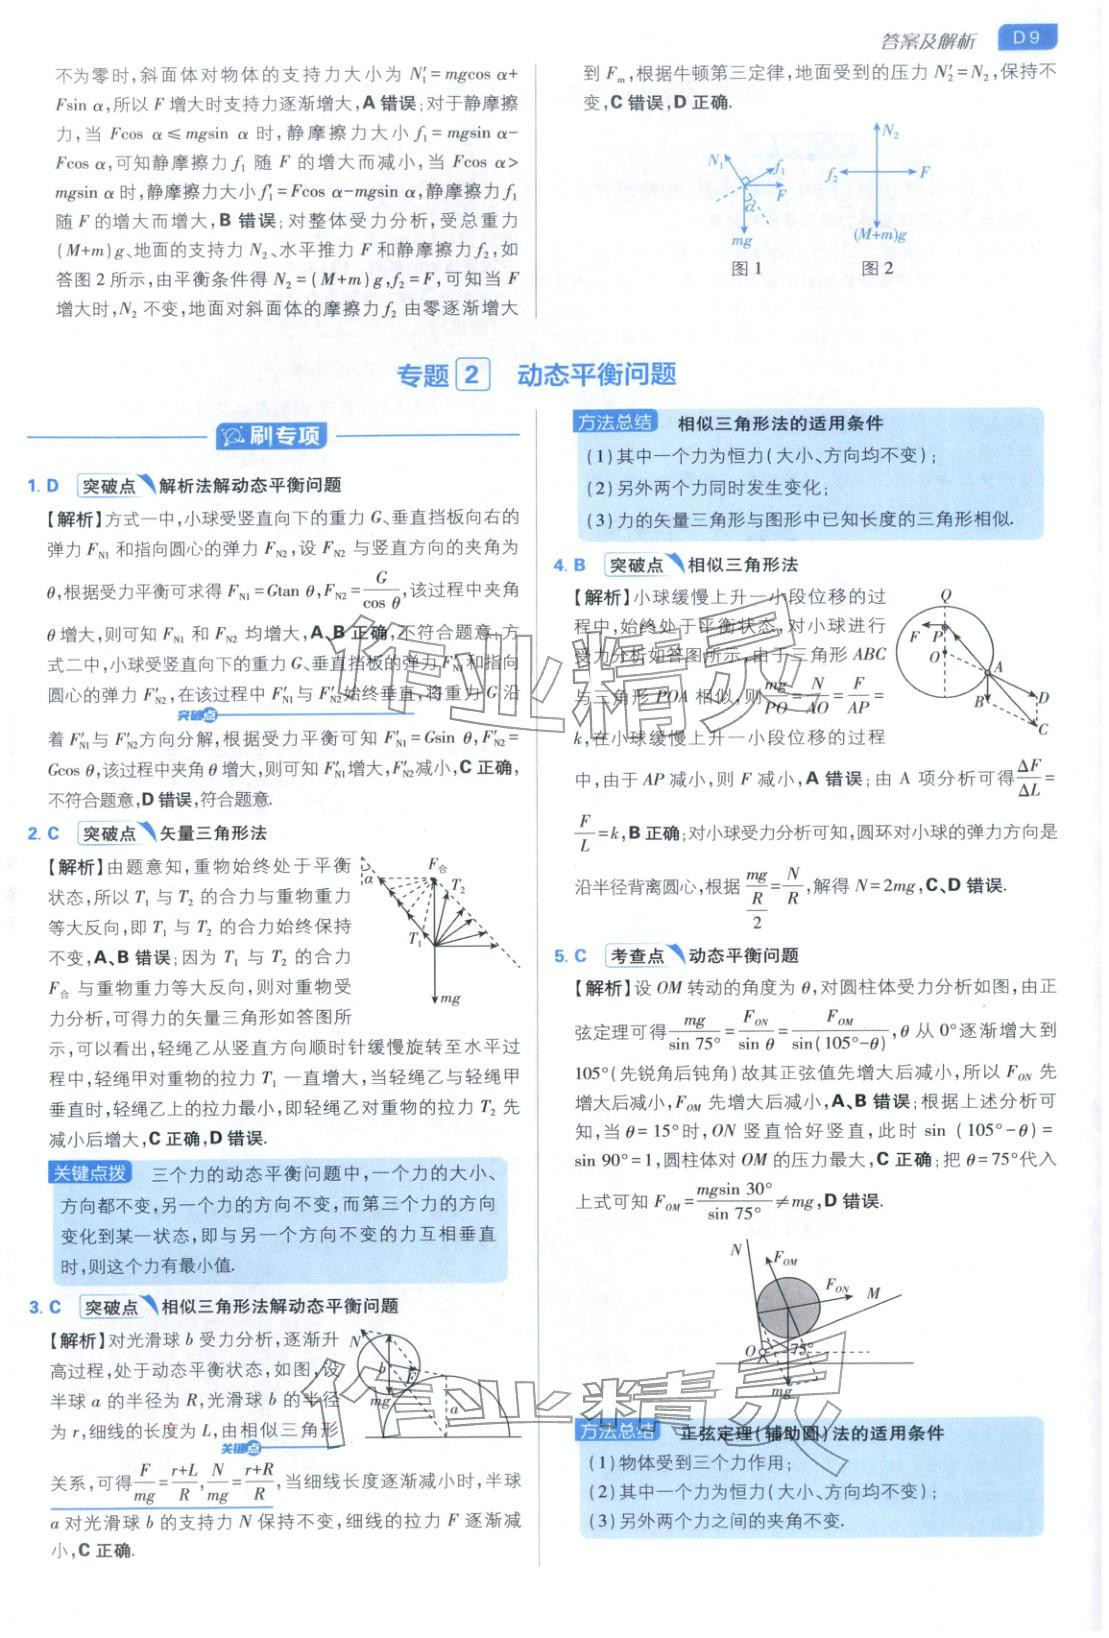 答案及解析 D9
不为零时,斜面体对物体的支持力大小为 N₁′=mgcos α+
Fsin α,所以 F 增大时支持力逐渐增大,A 错误;对于静摩擦
力,当 Fcos α≤mgsin α 时,静摩擦力大小 f₁=mgsin α-
Fcos α,可知静摩擦力 f₁ 随 F 的增大而减小,当 Fcos α>
mgsin α 时,静摩擦力大小 f₁′=Fcos α-mgsin α,静摩擦力 f₁
随 F 的增大而增大,B 错误;对整体受力分析,受总重力
(M+m)g、地面的支持力 N₂、水平推力 F 和静摩擦力 f₂,如
答图 2 所示,由平衡条件得 N₂=(M+m)g,f₂=F,可知当 F
增大时,N₂ 不变,地面对斜面体的摩擦力 f₂ 由零逐渐增大
到 Fₘ,根据牛顿第三定律,地面受到的压力 N₂′=N₂,保持不
变,C 错误,D 正确.
N₁ f₁ F α mg
图 1
N₂ f₂ F (M+m)g
图 2
专题 2 动态平衡问题
刷专项
1. D 突破点 解析法解动态平衡问题
【解析】方式一中,小球受竖直向下的重力 G、垂直挡板向右的
弹力 F_N1 和指向圆心的弹力 F_N2,设 F_N2 与竖直方向的夹角为
θ,根据受力平衡可求得 F_N1=Gtan θ,F_N2=G/cos θ,该过程中夹角
θ 增大,则可知 F_N1 和 F_N2 均增大,A、B 正确,不符合题意;方
式二中,小球受竖直向下的重力 G、垂直挡板的弹力 F′_N1 和指向
圆心的弹力 F′_N2,在该过程中 F′_N1 与 F′_N2 始终垂直,将重力 G 沿
突破点
着 F′_N1 与 F′_N2 方向分解,根据受力平衡可知 F′_N1=Gsin θ,F′_N2=
Gcos θ,该过程中夹角 θ 增大,则可知 F′_N1 增大,F′_N2 减小,C 正确,
不符合题意,D 错误,符合题意.
2. C 突破点 矢量三角形法
【解析】由题意知,重物始终处于平衡
状态,所以 T₁ 与 T₂ 的合力与重物重力
等大反向,即 T₁ 与 T₂ 的合力始终保持
不变,A、B 错误;因为 T₁ 与 T₂ 的合力
F合 与重物重力等大反向,则对重物受
力分析,可得力的矢量三角形如答图所
示,可以看出,轻绳乙从竖直方向顺时针缓慢旋转至水平过
程中,轻绳甲对重物的拉力 T₁ 一直增大,当轻绳乙与轻绳甲
垂直时,轻绳乙上的拉力最小,即轻绳乙对重物的拉力 T₂ 先
减小后增大,C 正确,D 错误.
α F合 T₂ T₁ mg
关键点拨 三个力的动态平衡问题中,一个力的大小、
方向都不变,另一个力的方向不变,而第三个力的方向
变化到某一状态,即与另一个方向不变的力互相垂直
时,则这个力有最小值.
3. C 突破点 相似三角形法解动态平衡问题
【解析】对光滑球 b 受力分析,逐渐升
高过程,处于动态平衡状态,如图,设
半球 a 的半径为 R,光滑球 b 的半径
为 r,细线的长度为 L,由相似三角形
关键点
关系,可得 F/mg=(r+L)/R,N/mg=(r+R)/R,当细线长度逐渐减小时,半球
a 对光滑球 b 的支持力 N 保持不变,细线的拉力 F 逐渐减
小,C 正确.
N b F mg a
方法总结 相似三角形法的适用条件
(1)其中一个力为恒力(大小、方向均不变);
(2)另外两个力同时发生变化;
(3)力的矢量三角形与图形中已知长度的三角形相似.
4. B 突破点 相似三角形法
【解析】小球缓慢上升一小段位移的过
程中,始终处于平衡状态,对小球进行
受力分析如答图所示,由于三角形 ABC
与三角形 POA 相似,则 mg/PO=N/AO=F/AP=
k,在小球缓慢上升一小段位移的过程
中,由于 AP 减小,则 F 减小,A 错误;由 A 项分析可得 ΔF/ΔL=
F/L=k,B 正确;对小球受力分析可知,圆环对小球的弹力方向是
沿半径背离圆心,根据 mg/(R/2)=N/R,解得 N=2mg,C、D 错误.
Q F P O A B D C
5. C 考查点 动态平衡问题
【解析】设 OM 转动的角度为 θ,对圆柱体受力分析如图,由正
弦定理可得 mg/sin 75°=F_ON/sin θ=F_OM/sin(105°-θ),θ 从 0°逐渐增大到
105°(先锐角后钝角)故其正弦值先增大后减小,所以 F_ON 先
增大后减小,F_OM 先增大后减小,A、B 错误;根据上述分析可
知,当 θ=15°时,ON 竖直恰好竖直,此时 sin (105°-θ)=
sin 90°=1,圆柱体对 OM 的压力最大,C 正确;把 θ=75°代入
上式可知 F_OM=mgsin 30°/sin 75°≠mg,D 错误.
N F_OM F_ON M O 75° mg
方法总结 正弦定理(辅助圆)法的适用条件
(1)物体受到三个力作用;
(2)其中一个力为恒力(大小、方向均不变);
(3)另外两个力之间的夹角不变.
作业精灵
作业精灵